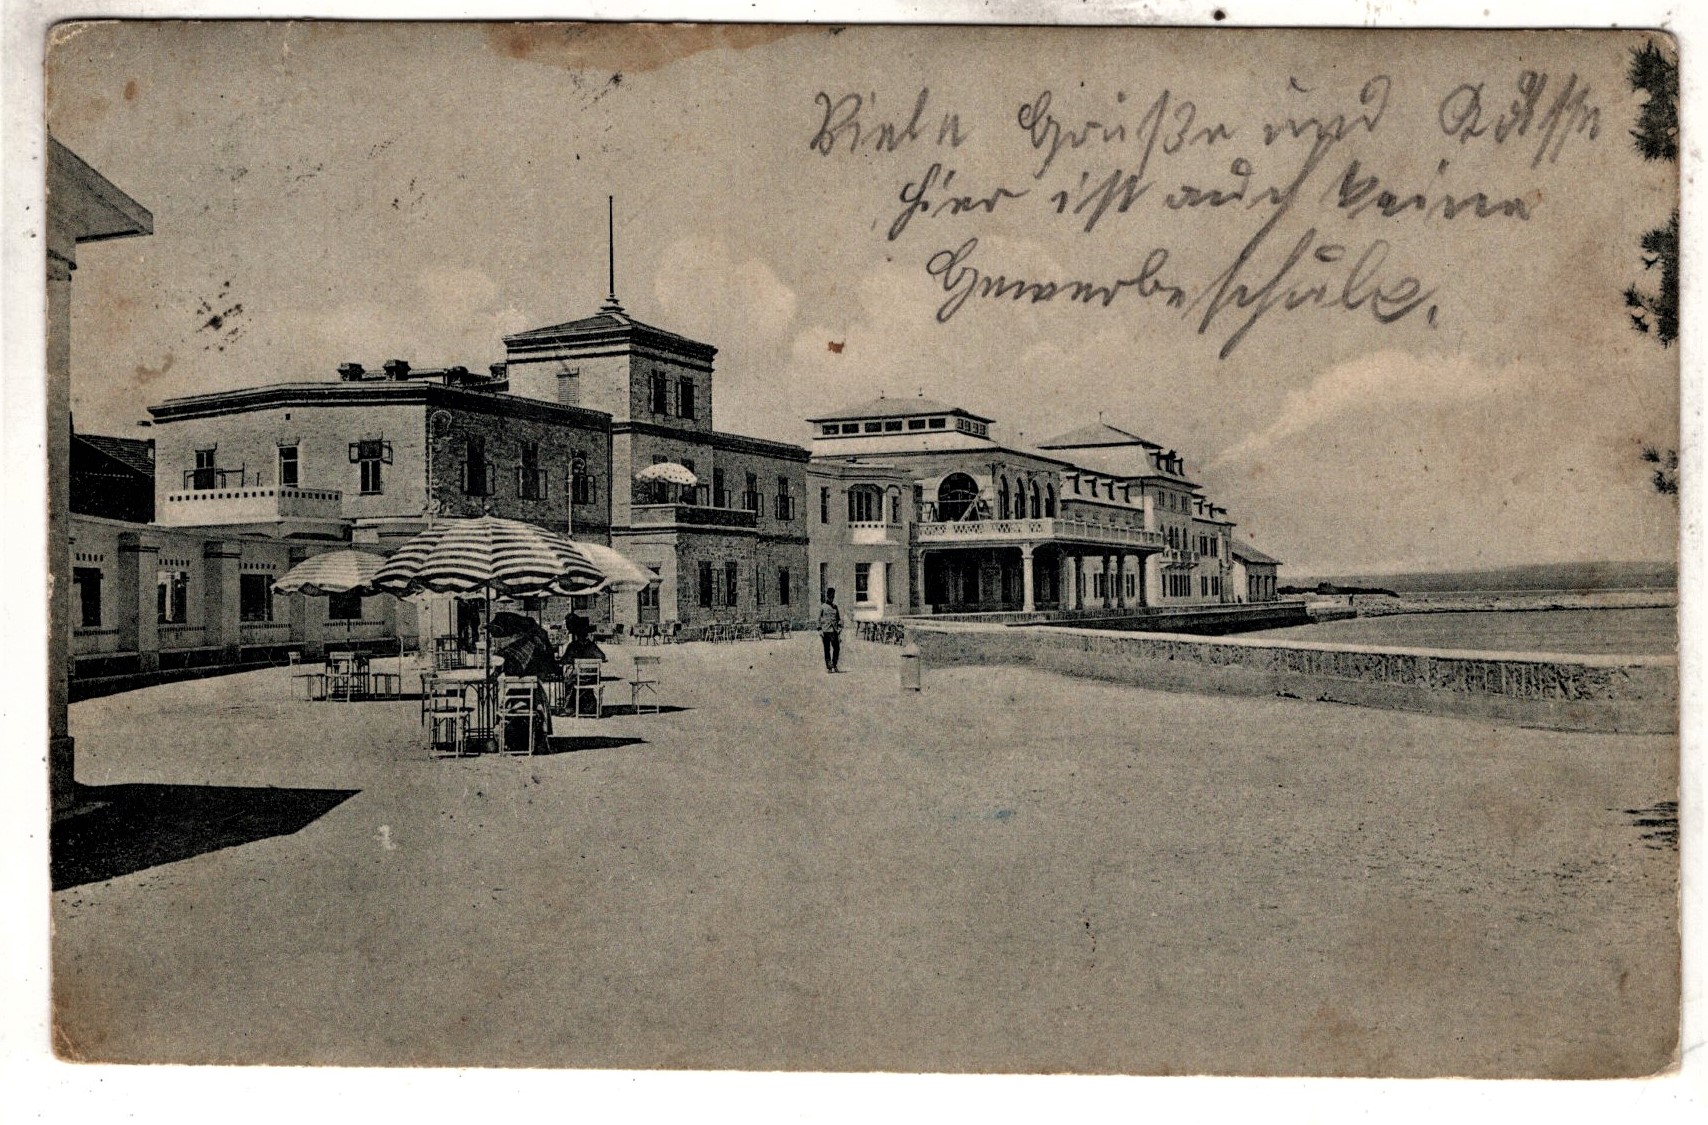 Viele Grüße und Küsse
hier ist auch keine
Gewerbeschule.